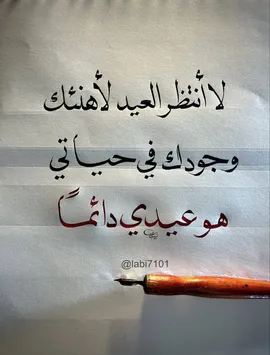 لا أنتظر العيد لأهنئك
وجودك في حياتي
هو عيدي دائماً
@labi7101